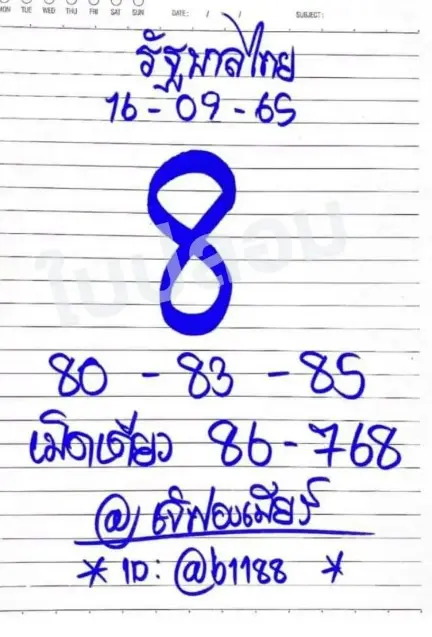 MON TUE WED THU FRI SAT SUN DATE: / / SUBJECT:
รัฐบาลไทย
16 - 09 - 65
8
ใบปลอม
80 - 83 - 85
เม็ดเดียว 86 - 768
* ID: @b1188 *